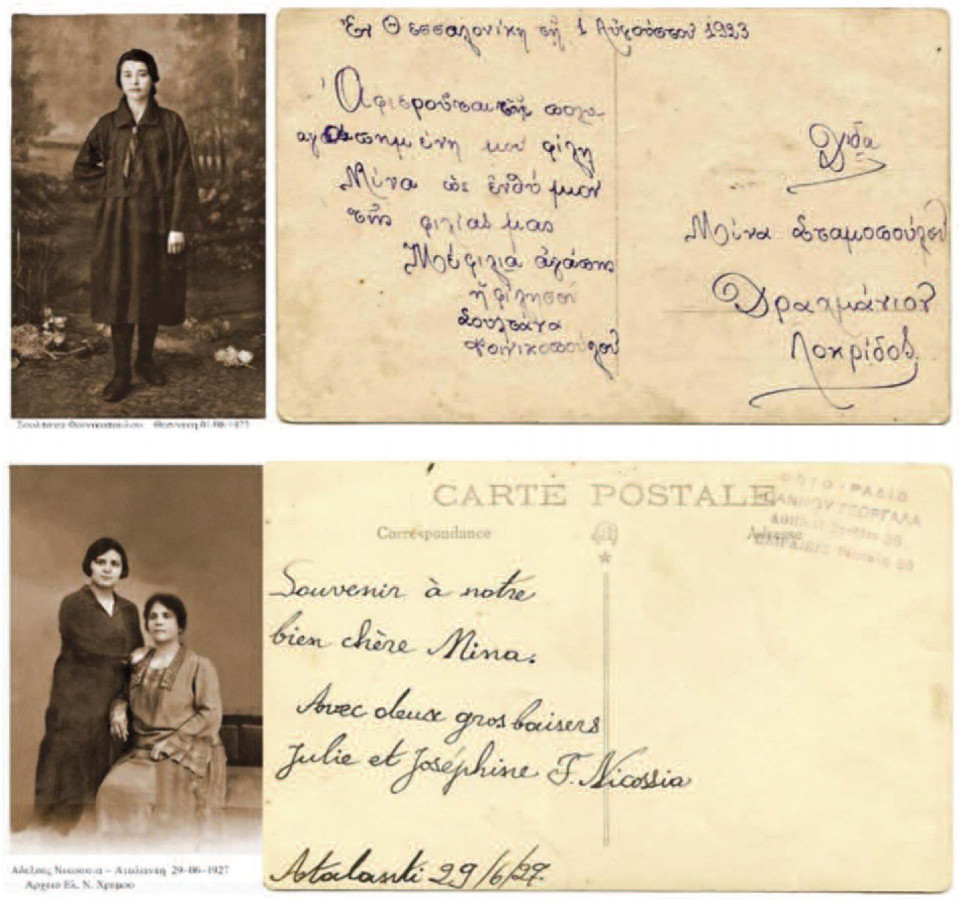 Ἐν Θεσσαλονίκη τῇ 1 Αὐγούστου 1923
Ἀφιεροῦται τῆ πολυ
αγαπημένη μου φίλη
Μίνα ὡς ἐνθύμιον
τῆς φιλίας μας
Μέ φιλιά ἀγάπης
ἡ φίλη σου
Σουλτάνα
Φοινικοπούλου
Δίδα
Μίνα Σταμοπούλου
Δραχμάνιον
Λοκρίδος
Σουλτάνα Φοινικοπούλου Θεσ/νίκη 01/08/1923
CARTE POSTALE
Correspondance
Adresse
ΦΩΤΟ-ΡΑΔΙΟ
ΙΩΑΝΝΟΥ ΓΕΩΡΓΑΛΑ
Souvenir à notre
bien chère Mina.
Avec deux gros baisers
Julie et Joséphine F. Nicossia
Atalanti 29/6/27.
Αδελφές Νικοσσια – Αταλαντη 29-06-1927
Αρχειο Ελ. Ν. Χρεμου